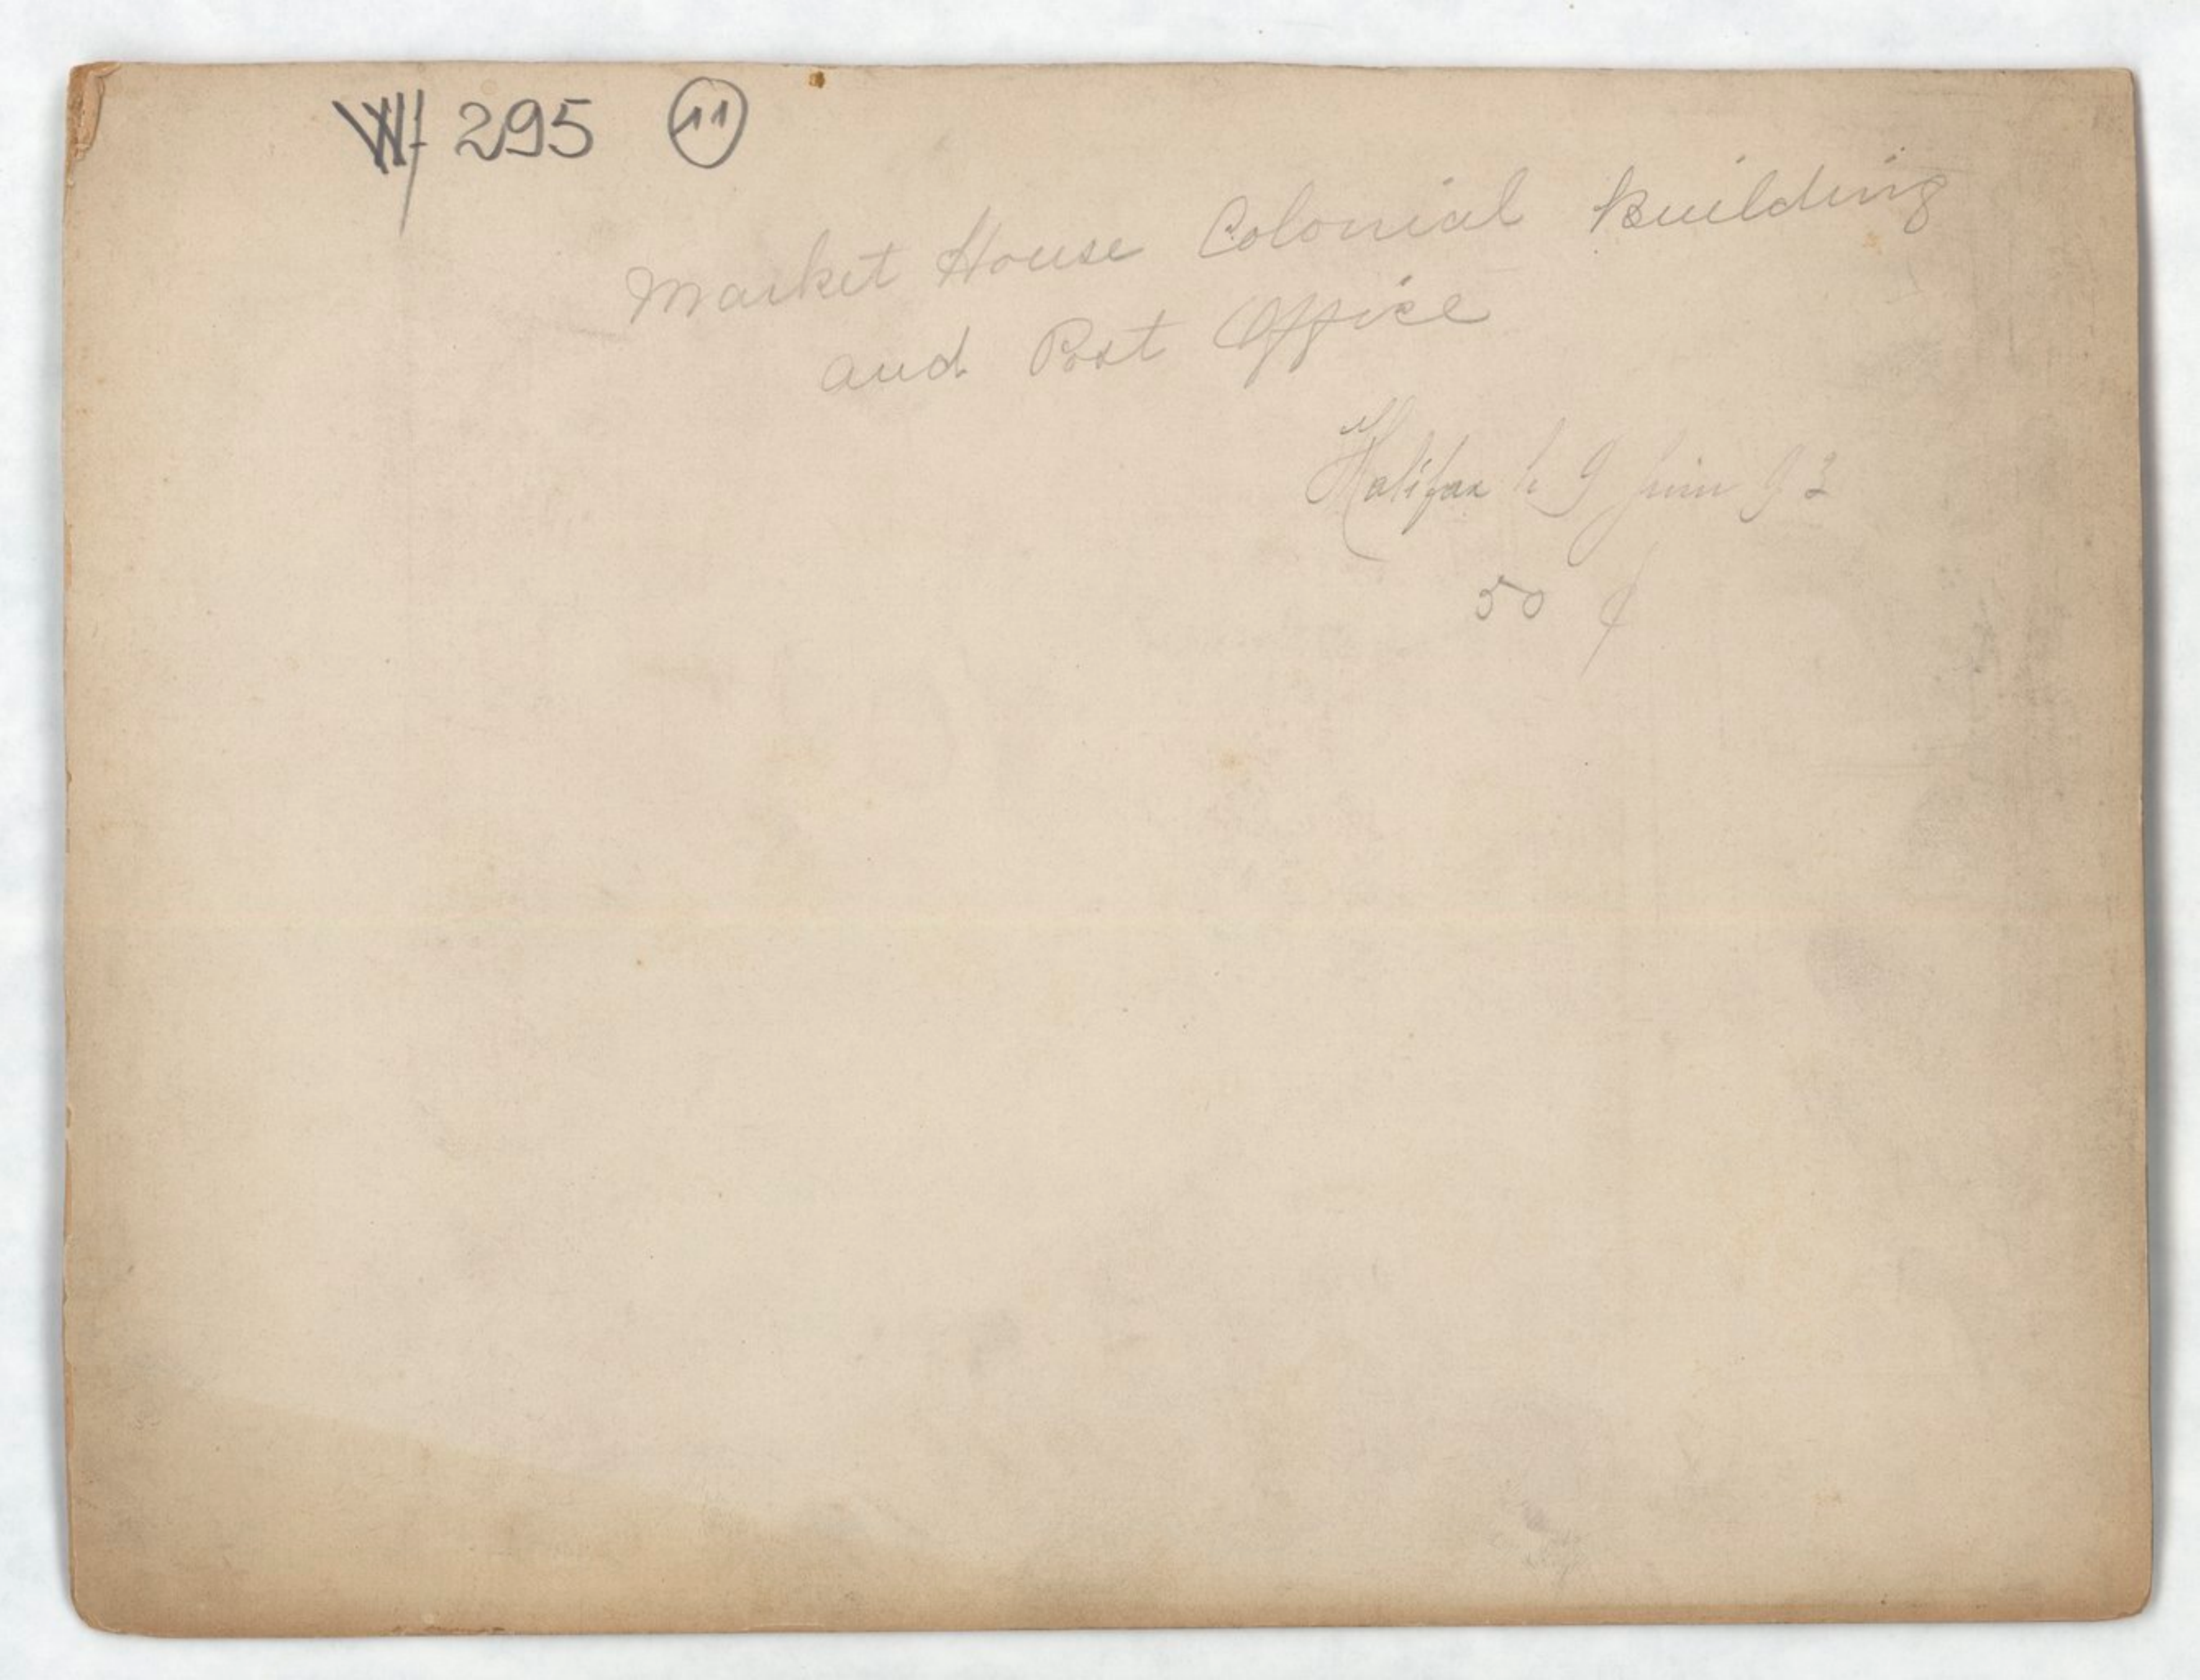 Wf 295 11
Market House Colonial Building
and Post Office
Halifax le 9 juin 93
50 ¢